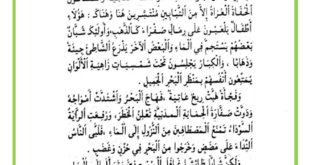 الحُفَاةُ العُرَاةُ إِلاَّ مِنَ التَّبَابِينِ مُنْتَشِرِينَ هُنَا وَهُنَاكَ : هَؤُلاَءِ
أَطْفَالٌ يَلْعَبُونَ عَلَى رِمَالٍ صَفْرَاءَ كَالذَّهَبِ، وَأُولَئِكَ شُبَّانٌ
بَعْضُهُمْ يَسْتَحِمُّ فِي المَاءِ، وَالبَعْضُ الآخَرُ يَذْرَعُ الشَّاطِئَ جِيئَةً
وَذَهَابًا، وَالكِبَارُ يَجْلِسُونَ تَحْتَ شَمْسِيَّاتٍ زَاهِيَةِ الأَلْوَانِ
يُمَتِّعُونَ أَنْفُسَهُمْ بِمَنْظَرِ البَحْرِ الجَمِيلِ.
وَفَجْأَةً هَبَّتْ رِيحٌ عَاتِيَةٌ، فَهَاجَ البَحْرُ وَاشْتَدَّتْ أَمْوَاجُهُ
وَدَوَّتْ صَفَّارَةُ الحِمَايَةِ المَدَنِيَّةِ تُعْلِنُ الخَطَرَ، وَرُفِعَتِ الرَّايَةُ
السَّوْدَاءُ، تَمْنَعُ المُصْطَافِينَ مِنَ النُّزُولِ إِلَى المَاءِ، فَلَبَّى النَّاسُ
النِّدَاءَ عَلَى مَضَضٍ وَخَرَجُوا مِنَ البَحْرِ فِي حُزْنٍ وَغَضَبٍ.
إِلَى المَاءِ